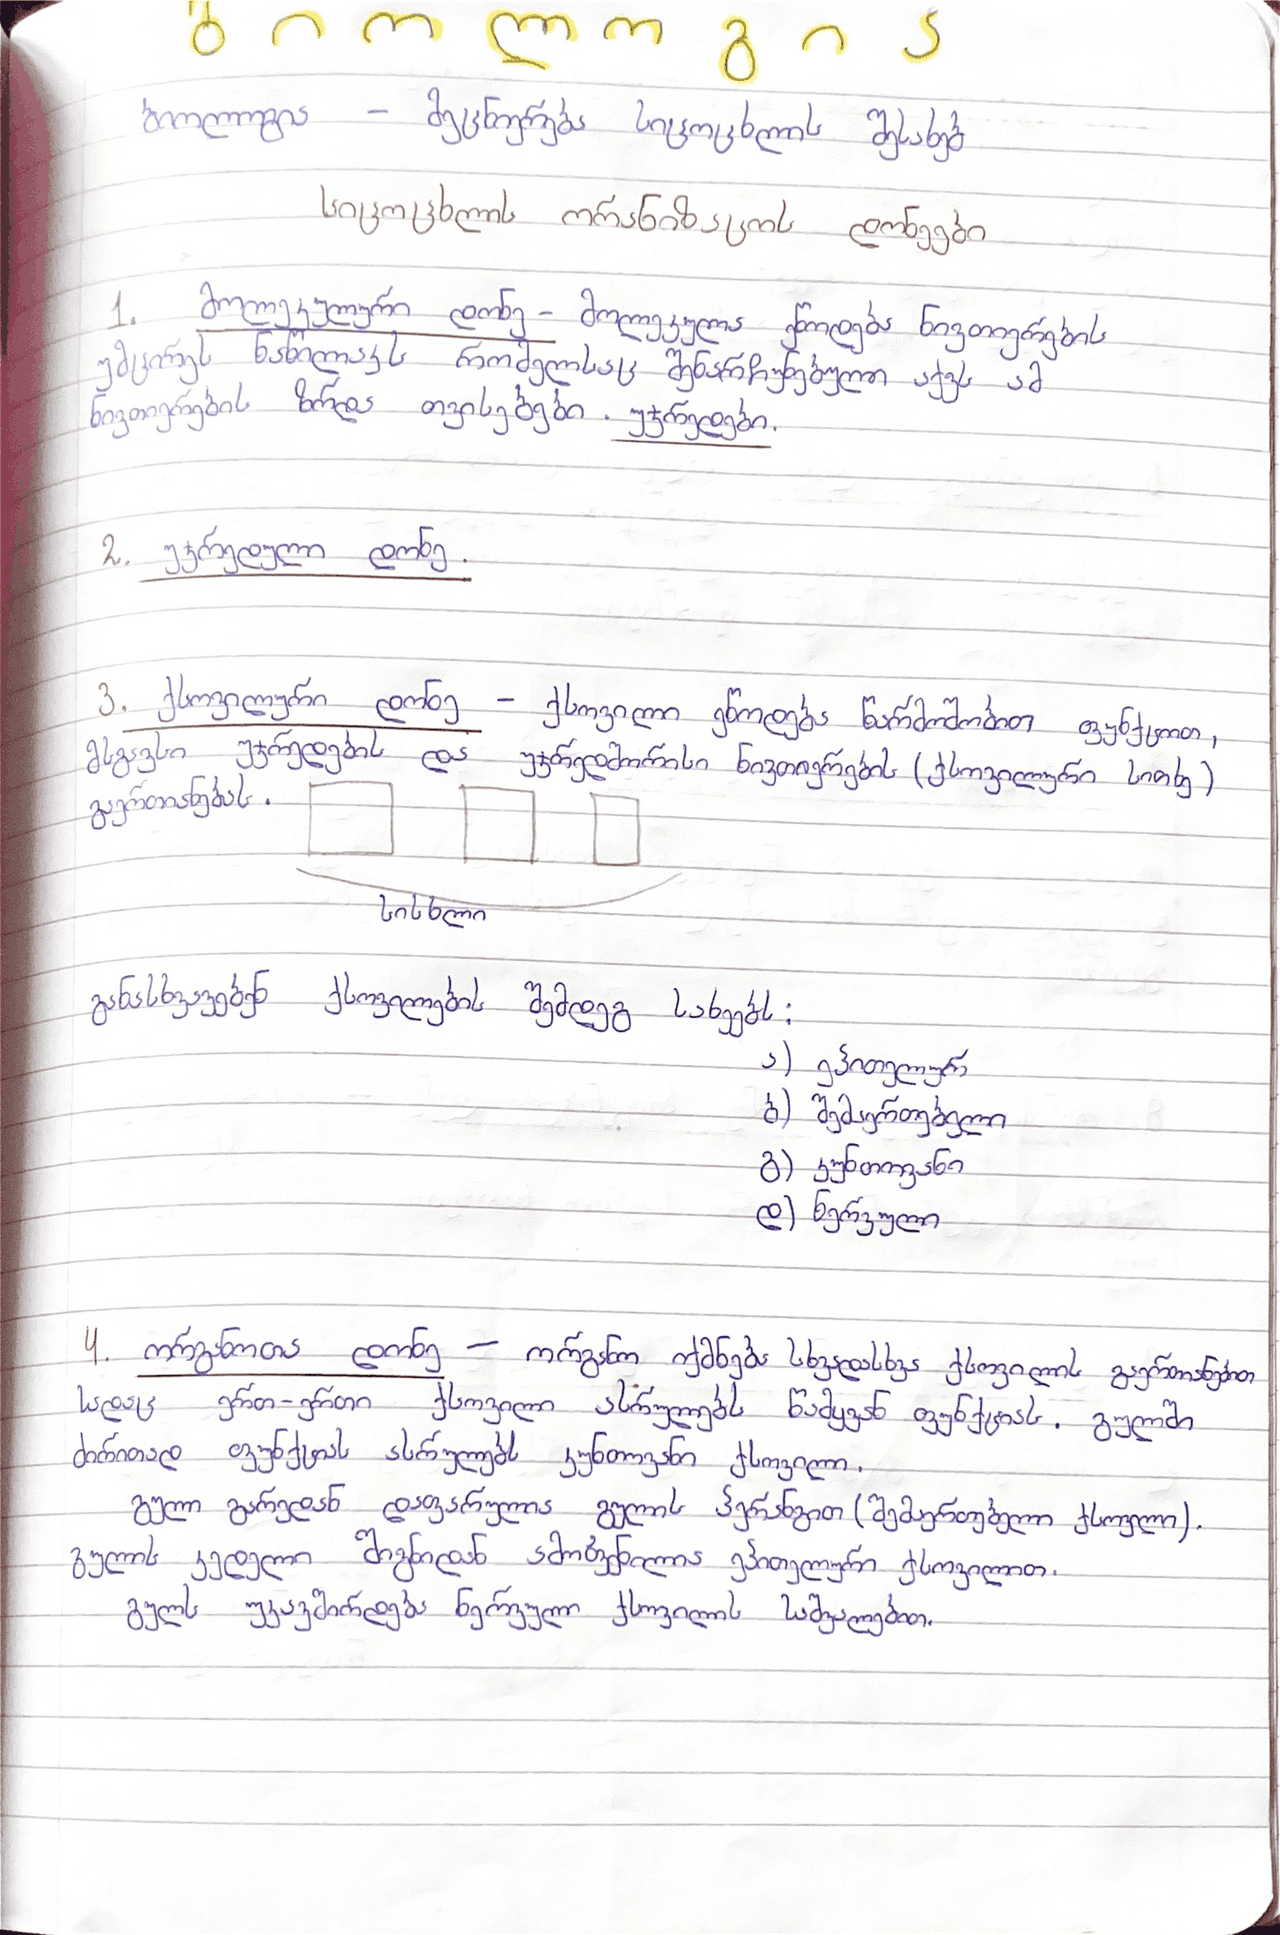 ბიოლოგია
ბიოლოგია – მეცნიერება სიცოცხლის შესახებ
სიცოცხლის ორანიზაციის დონეები
1. მოლეკულური დონე – მოლეკულა ეწოდება ნივთიერების
უმცირეს ნაწილაკს რომელსაც შენარჩუნებული აქვს ამ
ნივთიერების ზრდა თვისებები. უჯრედები.
2. უჯრედული დონე.
3. ქსოვილური დონე – ქსოვილი ეწოდება წარმოშობით ფუნქციით,
მსგავსი უჯრედების და უჯრედშორისი ნივთიერების (ქსოვილური სითხე)
გაერთიანებას.
სისხლი
განასხვავებენ ქსოვილების შემდეგ სახეებს:
ა) ეპითელური
ბ) შემაერთებელი
გ) კუნთოვანი
დ) ნერვული
4. ორგანოთა დონე – ორგანო იქმნება სხვადასხვა ქსოვილის გაერთიანებით
სადაც ერთ-ერთი ქსოვილი ასრულებს წამყვან ფუნქციას. გულში
ძირითად ფუნქციას ასრულებს კუნთოვანი ქსოვილი.
გული გარედან დაფარულია გულის პერანგით (შემაერთებელი ქსოვილი).
გულის კედელი შიგნიდან ამოფენილია ეპითელური ქსოვილით.
გულს უკავშირდება ნერვული ქსოვილის საშუალებით.